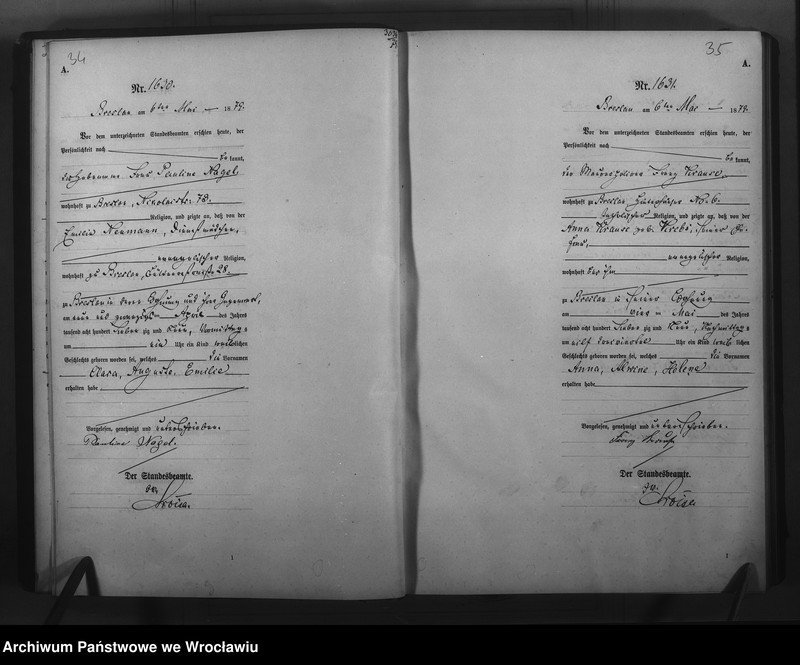 34
A.
Nr. 1630.
Breslau am 6ten Mai 1879.
Vor dem unterzeichneten Standesbeamten erschien heute, der
Persönlichkeit nach
be kannt,
die Hebamme Frau Pauline Nagel,
wohnhaft zu Breslau, Nikolaistr. 78.
Religion, und zeigte an, daß von der
Emilie Neumann, Dienstmädchen,
evangelischer Religion,
wohnhaft zu Breslau, 28,
zu Breslau in ihrer Wohnung und ihrer Gegenwart,
am neun und zwanzigsten April des Jahres
tausend acht hundert sieben zig und neun, Vormittags
um ein Uhr ein Kind weiblichen
Geschlechts geboren worden sei, welches die Vornamen
Clara, Auguste, Emilie
erhalten habe
Vorgelesen, genehmigt und unterschrieben.
Pauline Nagel.
Der Standesbeamte.
35
A.
Nr. 1631.
Breslau am 6ten Mai 1879.
Vor dem unterzeichneten Standesbeamten erschien heute, der
Persönlichkeit nach
be kannt,
der Maurerpolier Franz Krause,
wohnhaft zu Breslau, No. 6.
katholischer Religion, und zeigte an, daß von der
Anna Krause geb. Krebs, seiner Ehe-
frau,
evangelischer Religion,
wohnhaft bei ihm
zu Breslau in seiner Wohnung
am vierten Mai des Jahres
tausend acht hundert sieben zig und neun, Nachmittags
um elf dreiviertel Uhr ein Kind weiblichen
Geschlechts geboren worden sei, welches die Vornamen
Anna, Alwine, Helene
erhalten habe
Vorgelesen, genehmigt und unterschrieben.
Franz Krause
Der Standesbeamte.
Archiwum Państwowe we Wrocławiu